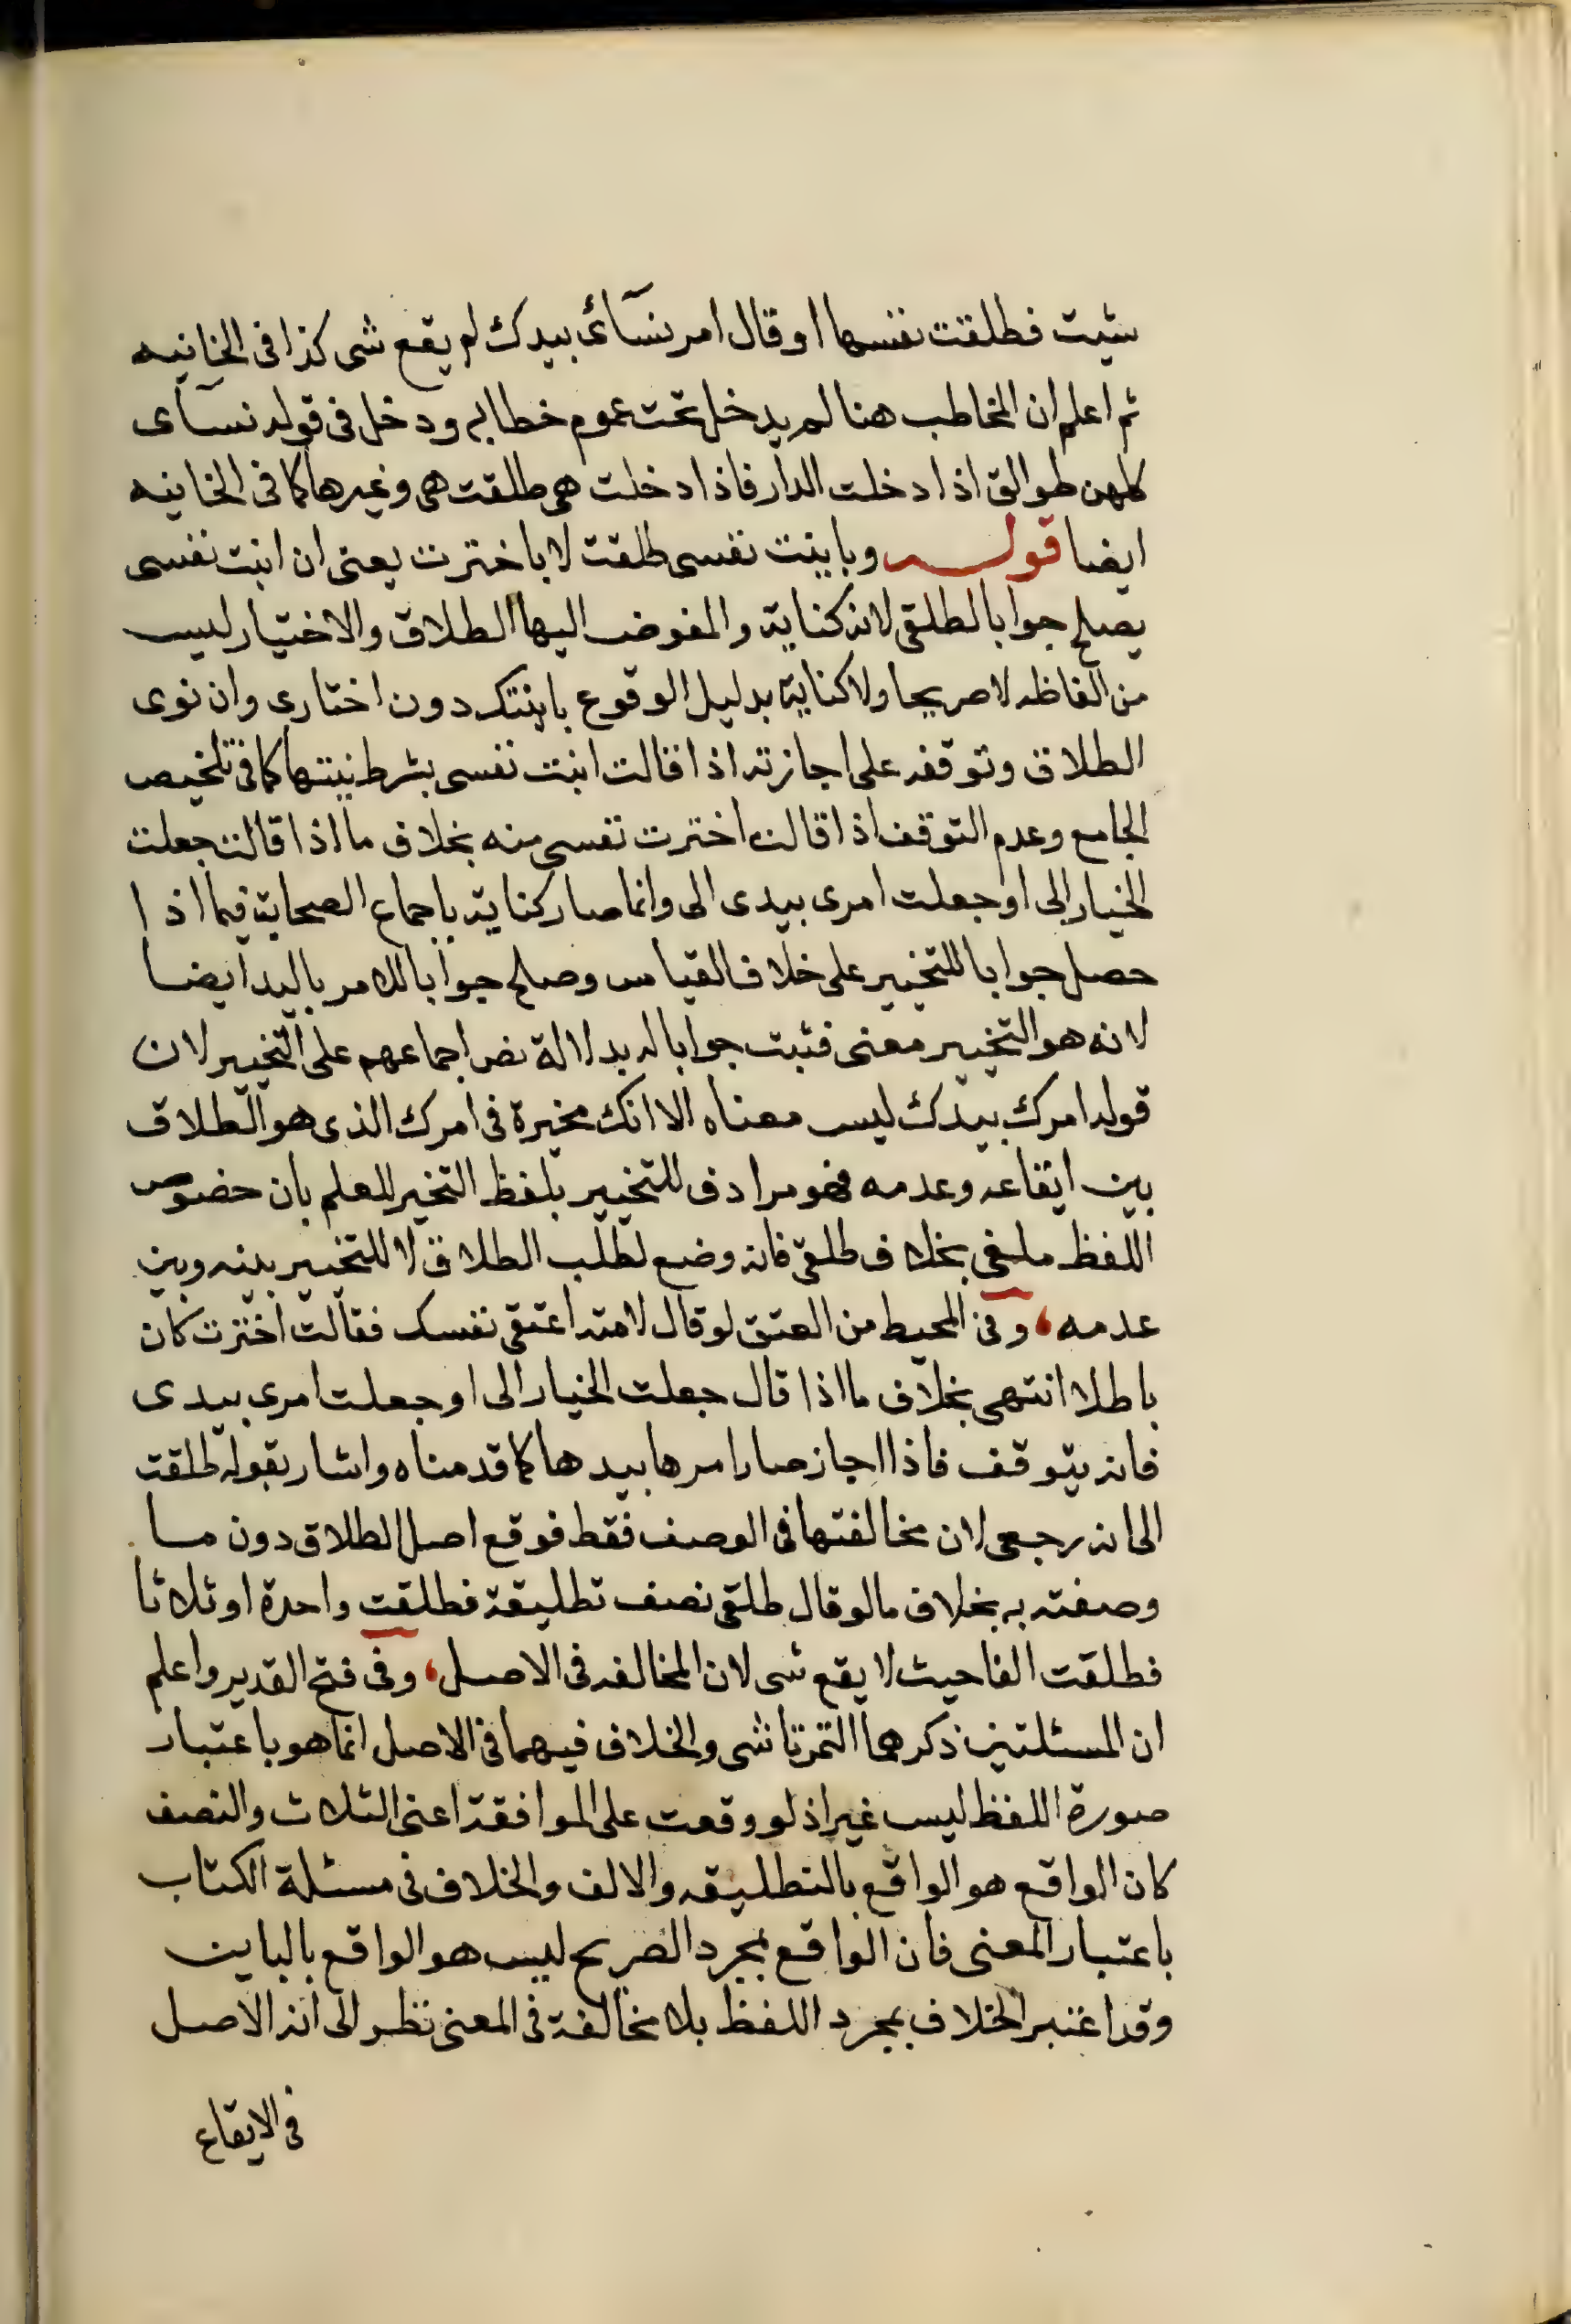 شيت فطلقت نفسها او قال امر نسآئى بيدك لم يقع شى كذا فى الخانيه
ثم اعلم ان المخاطب هنا لم يدخل تحت عموم خطابه ودخل فى قوله نسآى
كلهن طوالق اذا دخلت الدار فاذا دخلت هى طلقت هى وغيرها كما فى الخانيه
ايضا قوله وبابنت نفسى طلقت لا باخترت يعنى ان ابنت نفسى
يصلح جوابا لطلقى لانه كناية والمفوض اليها الطلاق والاختيار ليس
من الفاظه لا صريحا ولا كناية بدليل الوقوع بابنتك دون اختارى وان نوى
الطلاق وتوقفه على اجازته اذا قالت ابنت نفسى بشرط نيتها كما فى تلخيص
الجامع وعدم التوقف اذا قالت اخترت نفسى منه بخلاف ما اذا قالت جعلت
الخيار الى او جعلت امرى بيدى الى وانما صار كناية باجماع الصحابة فيما اذا
حصل جوابا للتخيير على خلاف القياس وصلح جوابا للامر باليد ايضا
لانه هو التخيير معنى فثبت جوابا له بدلالة نص اجماعهم على التخيير لان
قوله امرك بيدك ليس معناه الا انك مخيرة فى امرك الذى هو الطلاق
بين ايقاعه وعدمه فهو مرادف للتخيير بلفظ التخير للعلم بان خصوص
اللفظ ملغى بخلاف طلقى فانه وضع لطلب الطلاق لا للتخيير بينه وبين
عدمه، وفى المحيط من العتق لو قال لامته اعتقى نفسك فقالت اخترت كان
باطلا انتهى بخلاف ما اذا قال جعلت الخيار الى او جعلت امرى بيدى
فانه يتوقف فاذا اجاز صار امرها بيدها كما قدمناه واشار بقوله طلقت
الى انه رجعى لان مخالفتها فى الوصف فقط فوقع اصل الطلاق دون ما
وصفته به بخلاف ما لو قال طلقى نصف تطليقة فطلقت واحدة او ثلاثا
فطلقت الفا حيث لا يقع شى لان المخالفه فى الاصل، وفى فتح القدير واعلم
ان المسئلتين ذكرهما التمرتاشى والخلاف فيهما فى الاصل انما هو باعتبار
صورة اللفظ ليس غير اذ لو وقعت على الموافقة اعنى الثلاث والنصف
كان الواقع هو الواقع بالتطليقه والالف والخلاف فى مسئلة الكتاب
باعتبار المعنى فان الواقع بمجرد الصريح ليس هو الواقع بالباين
وقد اعتبر الخلاف بمجرد اللفظ بلا مخالفة فى المعنى نظر الى انه الاصل
فى الايقاع